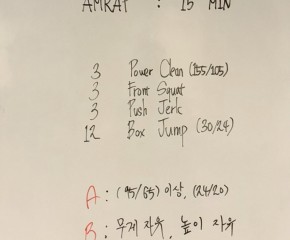 AMRAP : 15 MIN
3 Power Clean (155/105)
3 Front Squat
3 Push Jerk
12 Box Jump (30/24)
A : (95/65) 이상, (24/20)
B : 무게 자유, 높이 자유